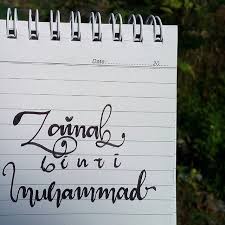 Date: 20
Zainab
binti
Muhammad